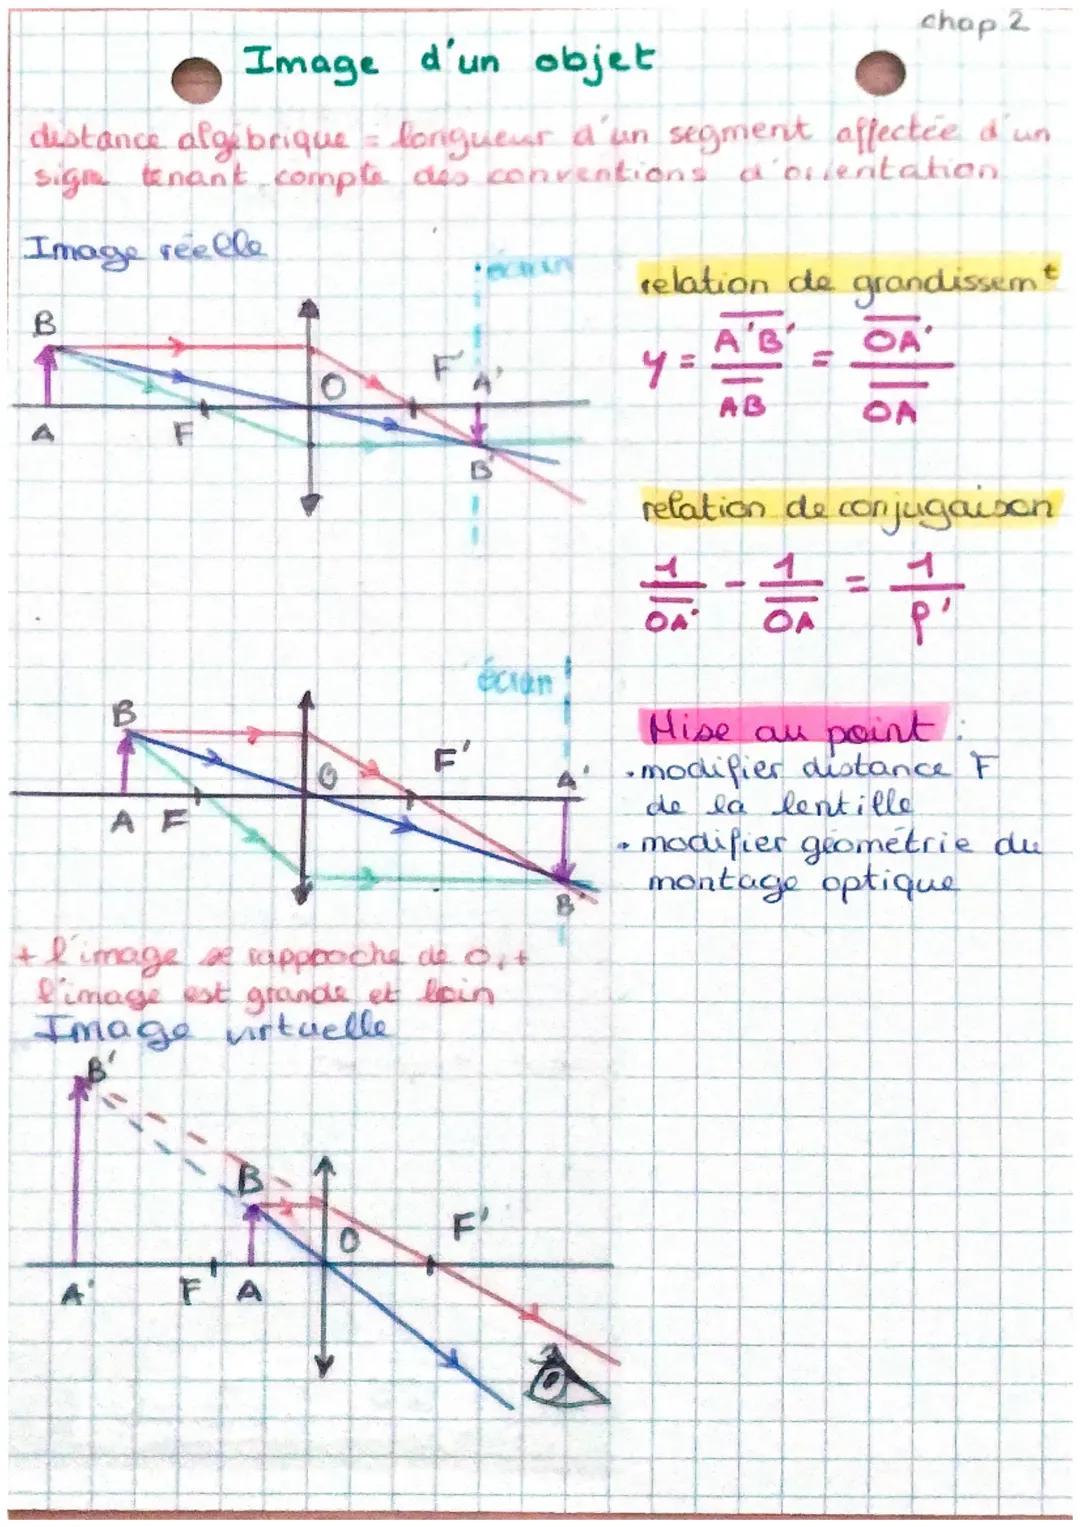 chap 2
Image d'un objet
distance algébrique = longueur d'un segment affectée d'un
signe tenant compte des conventions d'orientation
Image réelle
écran
B
O
F'
A'
A
F
B'
relation de grandissemt
γ = A'B' / AB = OA' / OA
relation de conjugaison
1/OA' - 1/OA = 1/f'
écran
B
O
F'
A'
A F
B'
Mise au point :
• modifier distance F
de la lentille
• modifier géométrie du
montage optique
+ l'image se rapproche de O, +
l'image est grande et loin
Image virtuelle
B'
B
O
F'
A'
F
A